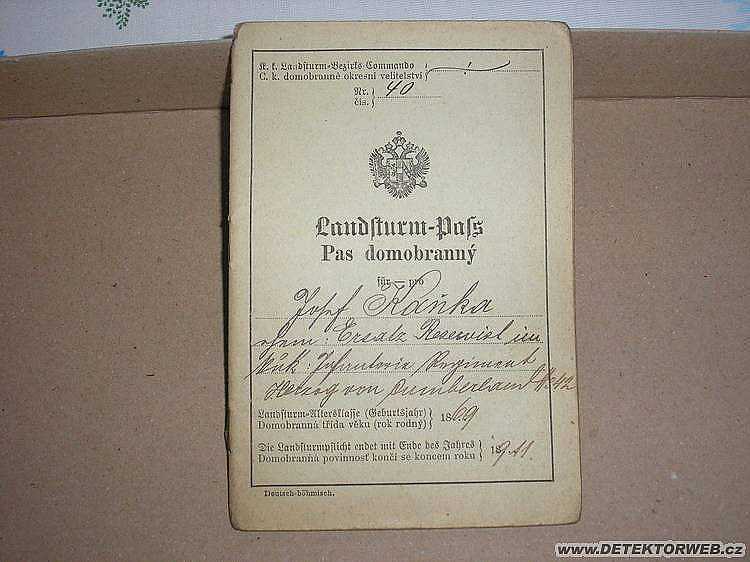 K. k. Landsturm-Bezirks Commando
C. k. domobranné okresní velitelství
Nr. 40
čís.
Landsturm-Paſs
Pas domobranný
für — pro
Josef Kaňka
ehem: Ersatz Resevist im
k&k: Infanterie Regiment
Herzog von Cumberland № 42
Landsturm-Altersklasse (Geburtsjahr) 1869
Domobranná třída věku (rok rodný)
Die Landsturmpflicht endet mit Ende des Jahres 1911
Domobranná povinnosť končí se koncem roku
Deutsch-böhmisch.
www.DETEKTORWEB.cz